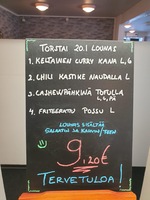 TORSTAI 20.1 LOUNAS
1. KELTAINEN CURRY KANA L,G
2. CHILI KASTIKE NAUDALLA L
3. CASHEWPÄHKINÄ TOFULLA
L,G,PÄ
4. FRITEERATTU POSSU L
LOUNAS SISÄLTÄÄ
SALAATIN JA KAHVIN/TEEN
9,20€
TERVETULOA!